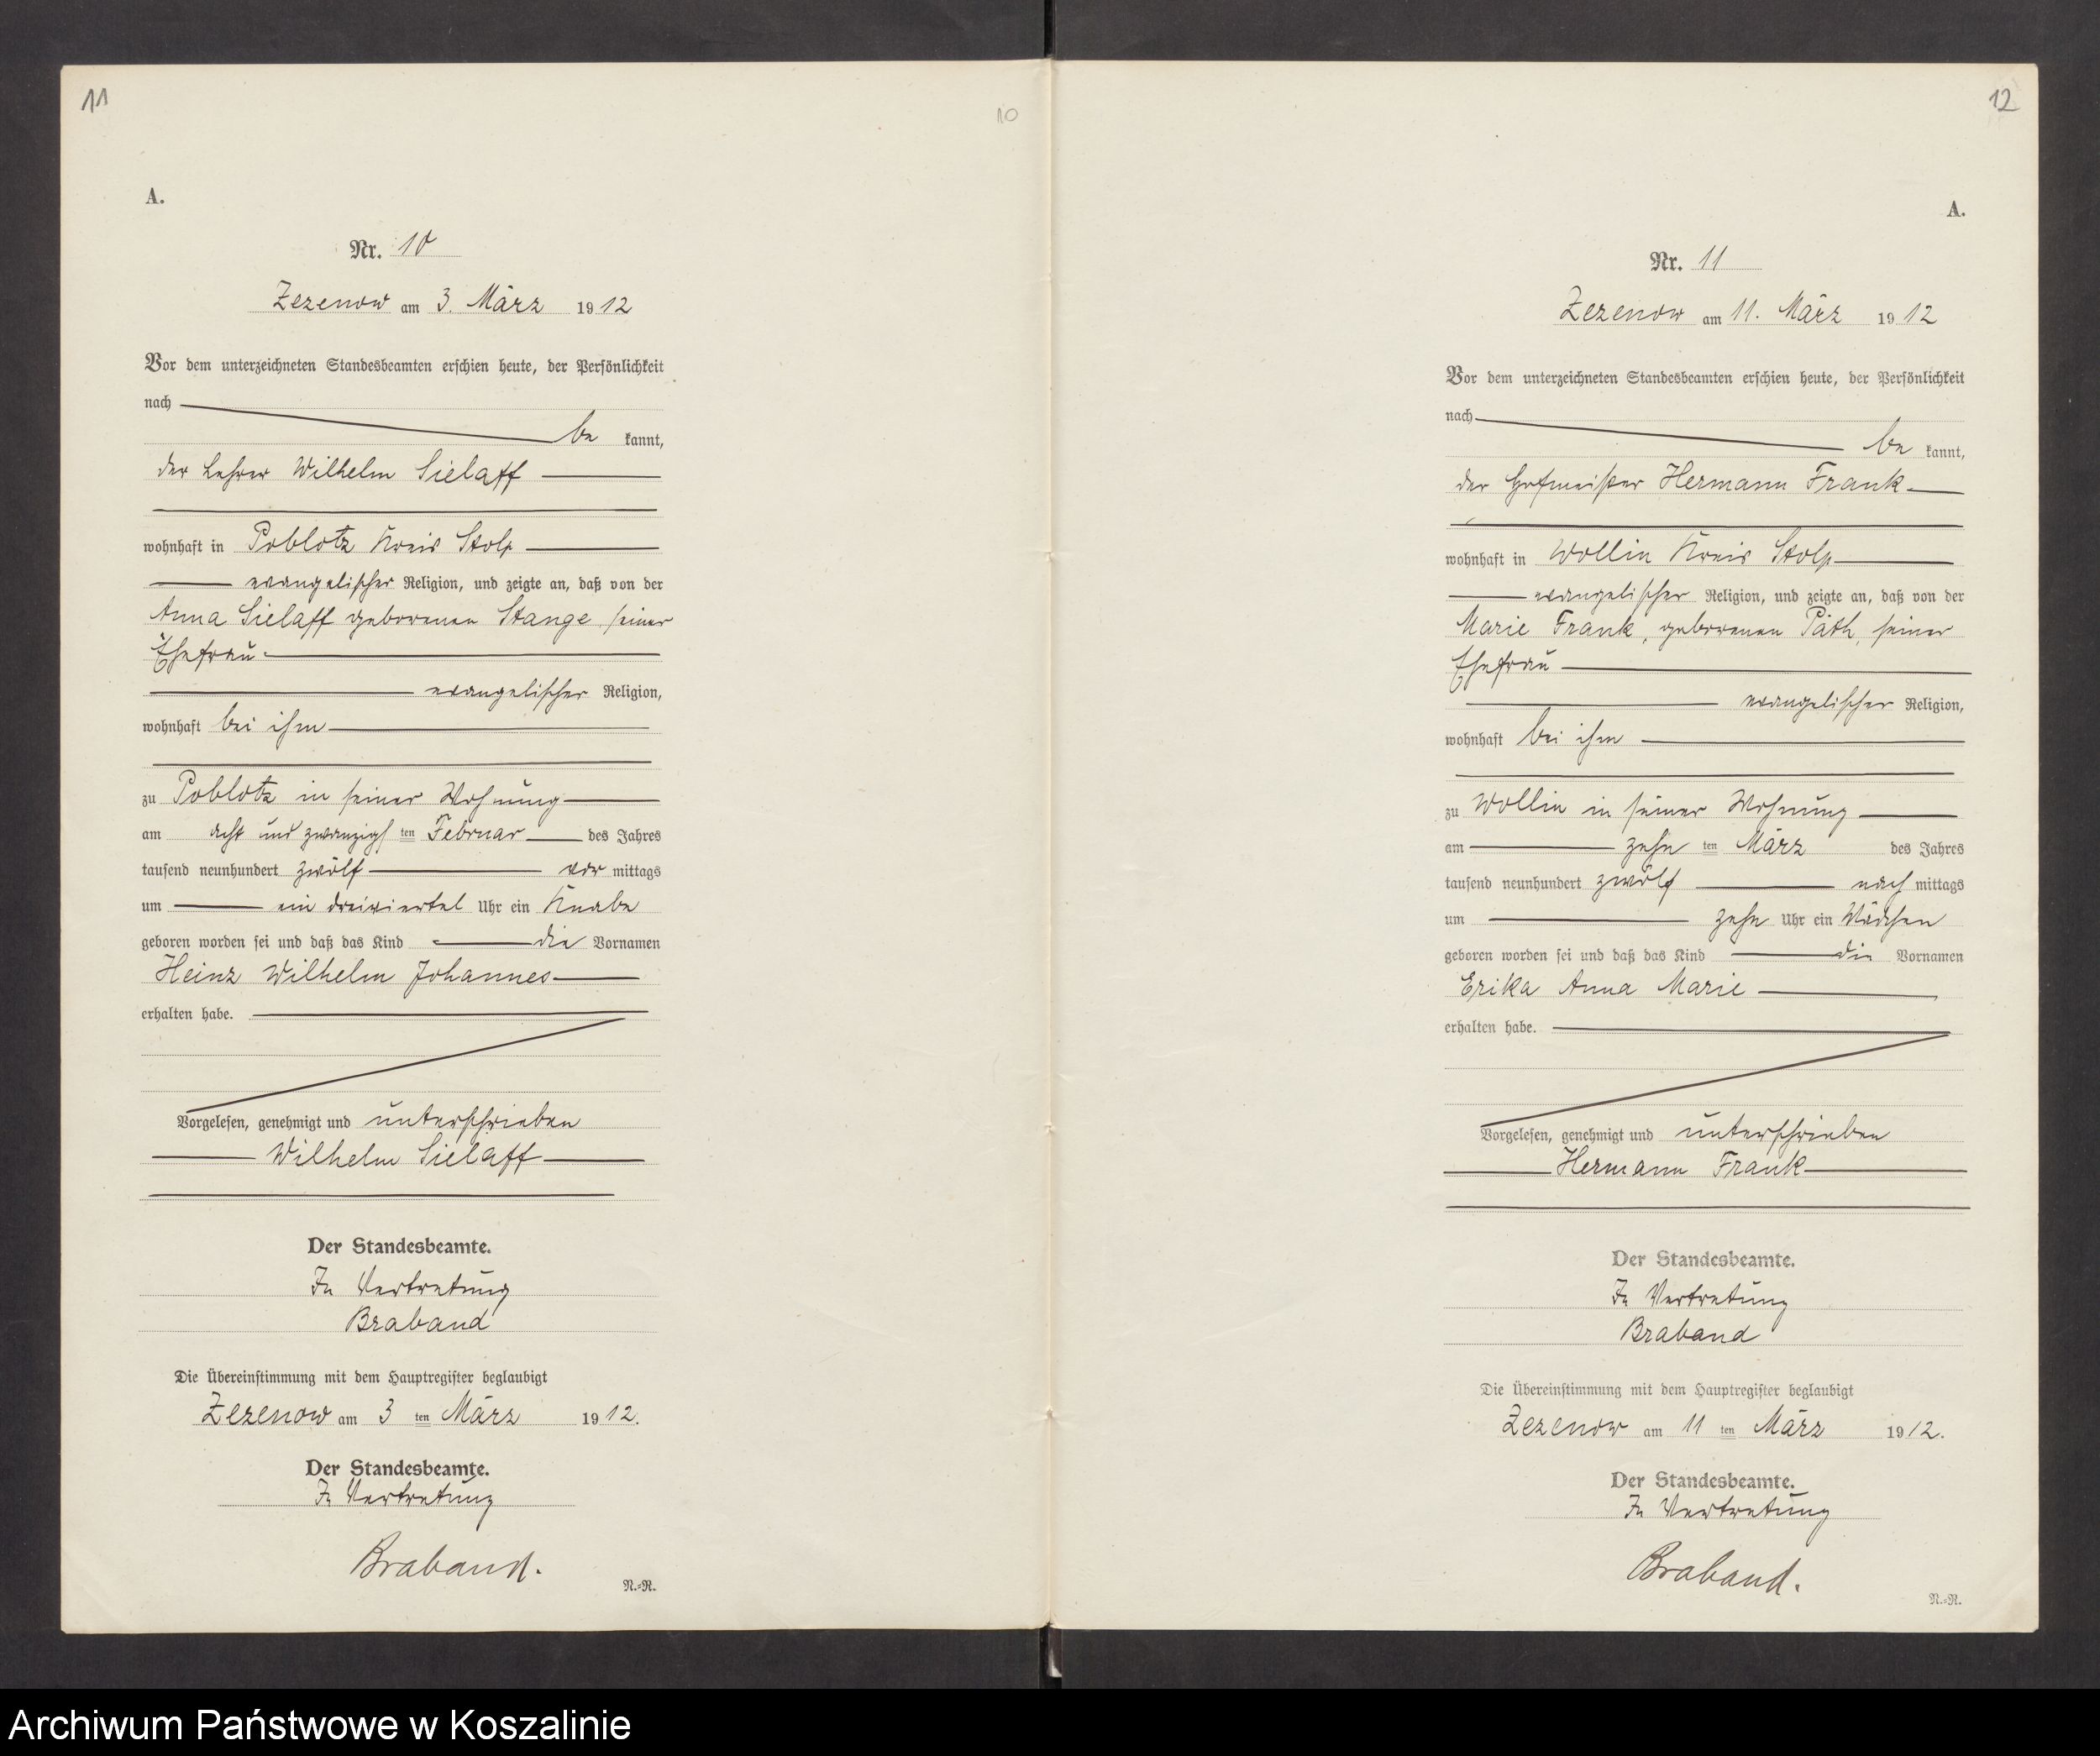 11
10
A.
Nr. 10
Zezenow am 3. März 1912
Vor dem unterzeichneten Standesbeamten erschien heute, der Persönlichkeit
nach
be kannt,
der Lehrer Wilhelm Sielaff
wohnhaft in Poblotz Kreis Stolp
evangelischer Religion, und zeigte an, daß von der
Anna Sielaff geborenen Stange, seiner
Ehefrau
evangelischer Religion,
wohnhaft bei ihm
zu Poblotz in seiner Wohnung
am acht und zwanzigsten Februar des Jahres
tausend neunhundert zwölf vor mittags
um ein dreiviertel Uhr ein Knabe
geboren worden sei und daß das Kind die Vornamen
Heinz Wilhelm Johannes
erhalten habe.
Vorgelesen, genehmigt und unterschrieben
Wilhelm Sielaff
Der Standesbeamte.
In Vertretung
Braband
Die Übereinstimmung mit dem Hauptregister beglaubigt
Zezenow am 3 ten März 1912.
Der Standesbeamte.
In Vertretung
Braband.
N.-R.
12
A.
Nr. 11
Zezenow am 11. März 1912
Vor dem unterzeichneten Standesbeamten erschien heute, der Persönlichkeit
nach
be kannt,
der Hofmeister Hermann Frank
wohnhaft in Wollin Kreis Stolp
evangelischer Religion, und zeigte an, daß von der
Marie Frank, geborenen Päth, seiner
Ehefrau
evangelischer Religion,
wohnhaft bei ihm
zu Wollin in seiner Wohnung
am zehn ten März des Jahres
tausend neunhundert zwölf nach mittags
um zehn Uhr ein Mädchen
geboren worden sei und daß das Kind die Vornamen
Erika Anna Marie
erhalten habe.
Vorgelesen, genehmigt und unterschrieben
Hermann Frank
Der Standesbeamte.
In Vertretung
Braband
Die Übereinstimmung mit dem Hauptregister beglaubigt
Zezenow am 11 ten März 1912.
Der Standesbeamte.
In Vertretung
Braband.
N.-R.
Archiwum Państwowe w Koszalinie